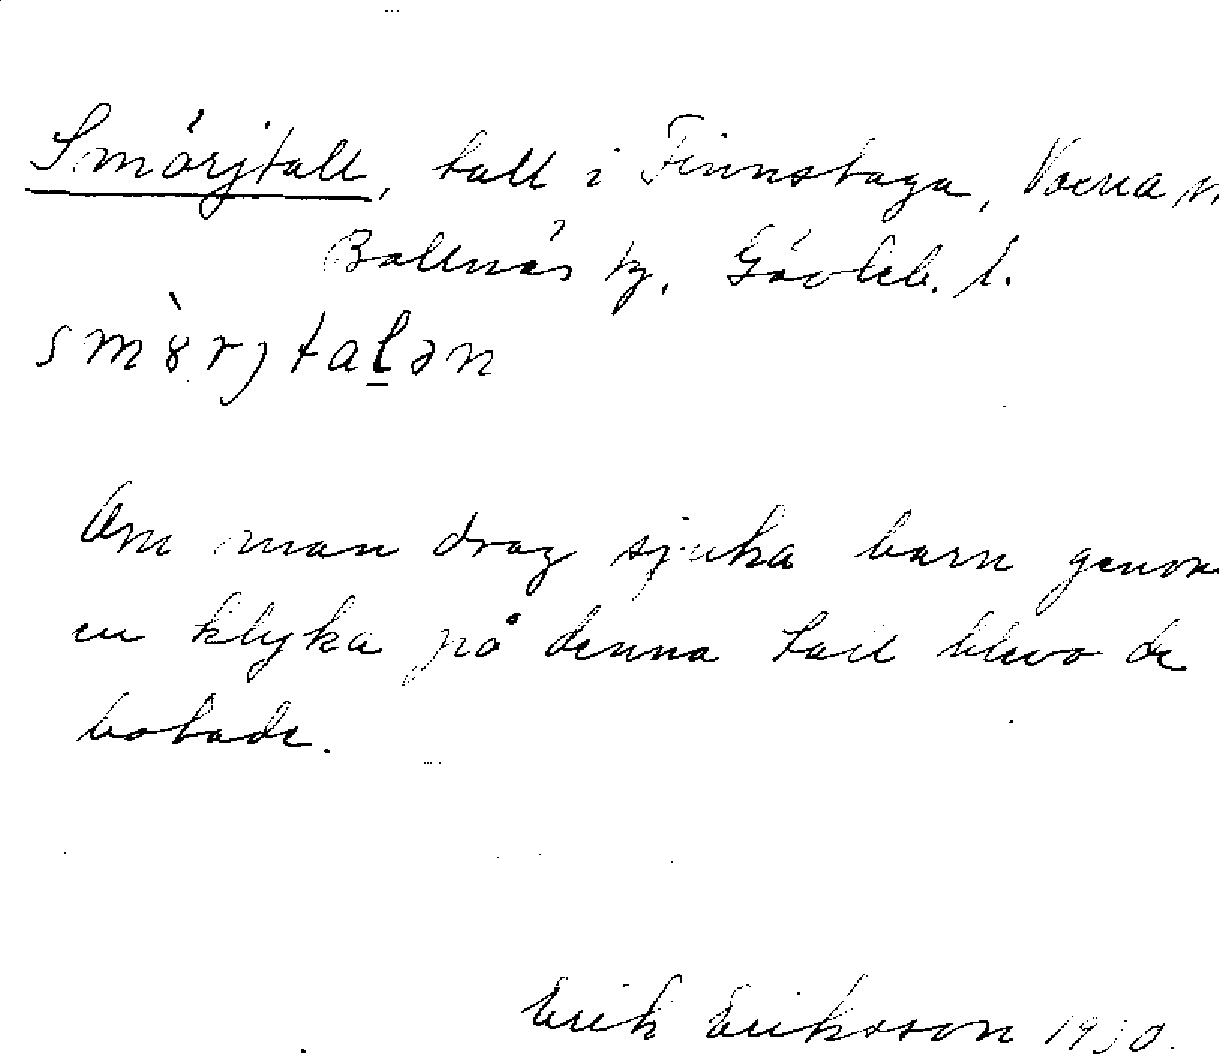 Smörjtall, tall i Finnstuga, Voxna
Bollnäs tg, Gävleb. l.
smörjtalən
Om man drog sjuka barn genom
en klyka på denna tall blevo de
botade.
Erik Eriksson 1930.